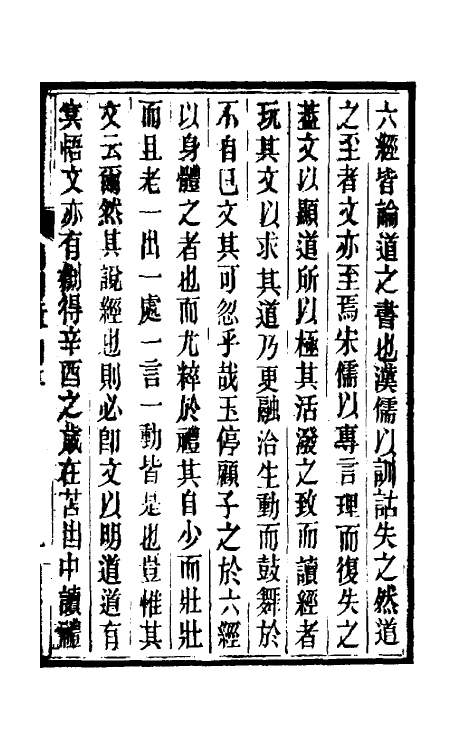 六經皆論道之書也漢儒以訓詁失之然道
之至者文亦至焉宋儒以專言理而復失之
葢文以顯道所以極其活潑之致而讀經者
玩其文以求其道乃更融洽生動而鼓舞於
不自已文其可忽乎哉玉停顧子之於六經
以身體之者也而尤粹於禮其自少而壯壯
而且老一出一處一言一動皆是也豈惟其
文云爾然其說經也則必卽文以明道道有
冥悟文亦有創得辛酉之歲在苫凷中讀禮